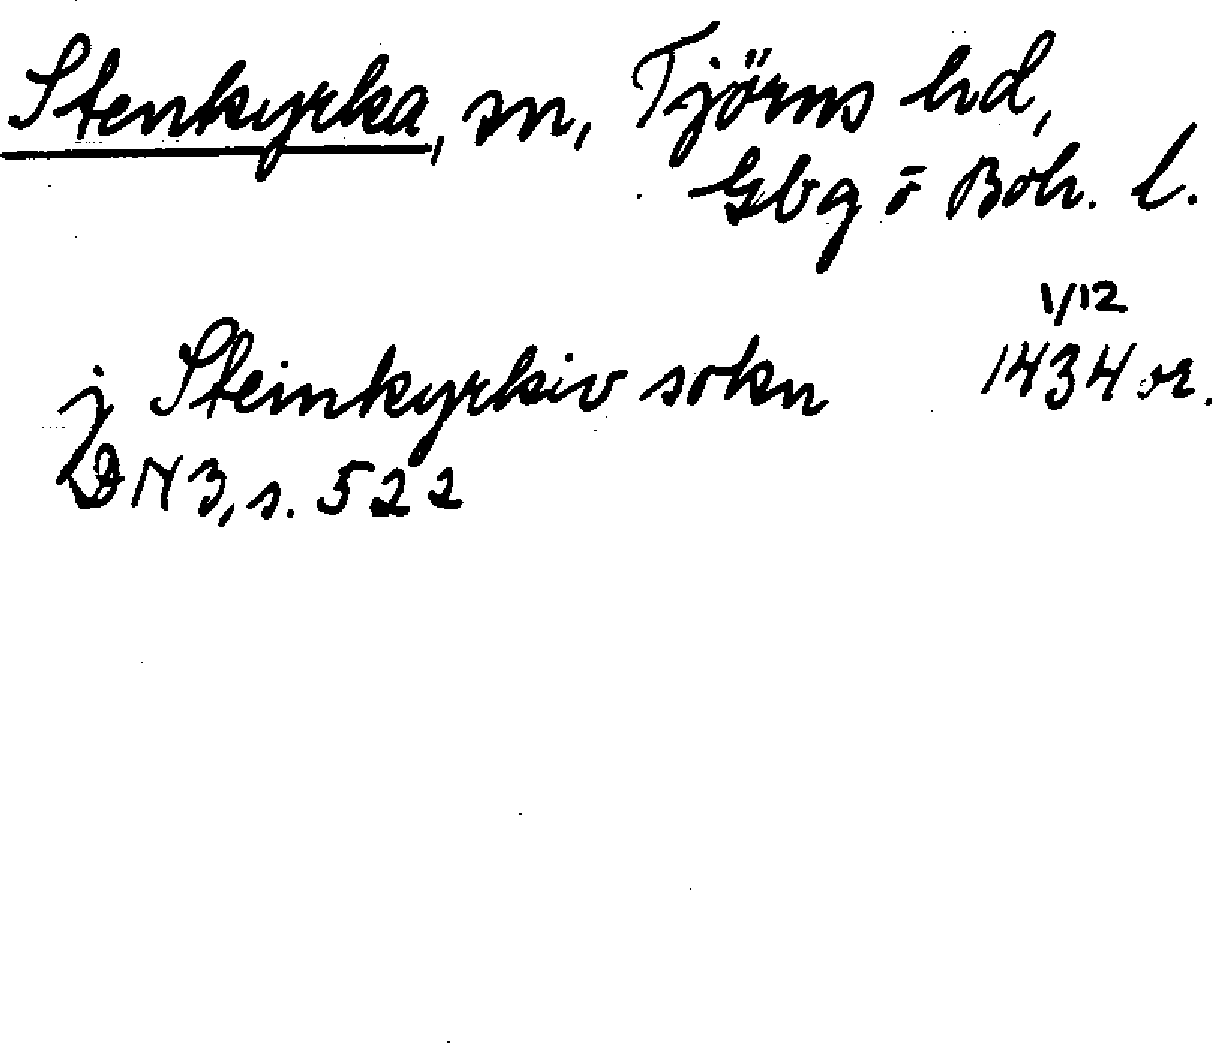 Stenkyrka, sn, Tjörns hd,
Gbg o Boh. l.
1/12
j Steinkyrkiv sokn 1434 or.
DN 3, s. 522